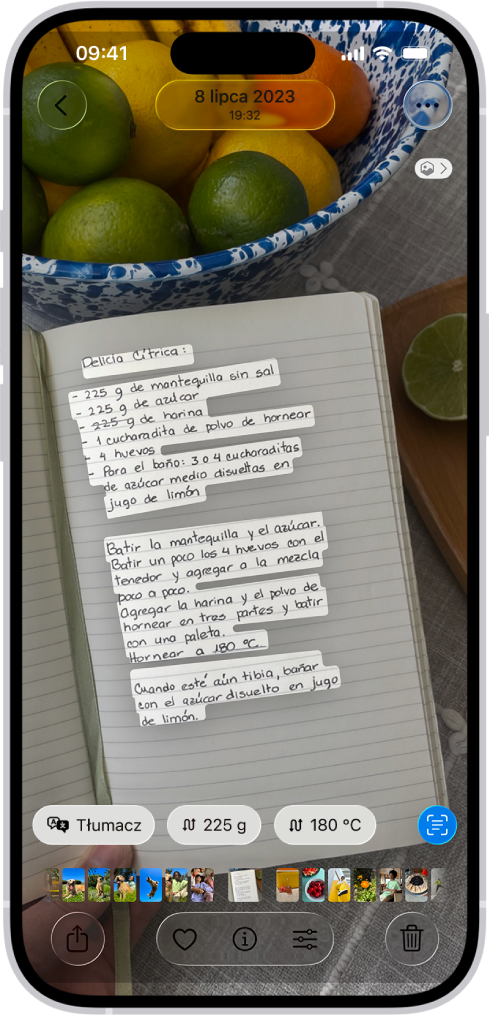 09:41
8 lipca 2023
19:32
Delicia Cítrica:
- 225 g de mantequilla sin sal
- 225 g de azúcar
- 225 g de harina
- 1 cucharadita de polvo de hornear
- 4 huevos
- Para el baño: 3 o 4 cucharaditas
de azúcar medio disueltas en
jugo de limón
Batir la mantequilla y el azúcar.
Batir un poco los 4 huevos con el
tenedor y agregar a la mezcla
poco a poco.
Agregar la harina y el polvo de
hornear en tres partes y batir
con una paleta.
Hornear a 180 °C.
Cuando esté aún tibia, bañar
con el azúcar disuelto en jugo
de limón.
Tłumacz
225 g
180 °C